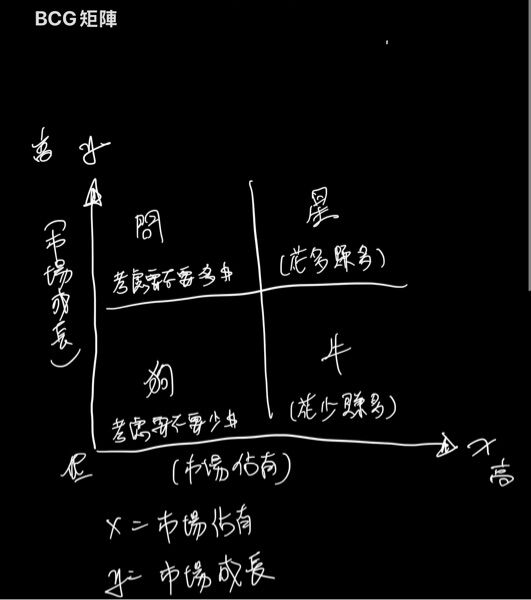 BCG矩陣
高 y
(市場成長)
問
星
考慮要不要多
(花多賺多)
狗
牛
考慮要不要少
(花少賺多)
低
(市場佔有)
x
高
x = 市場佔有
y = 市場成長